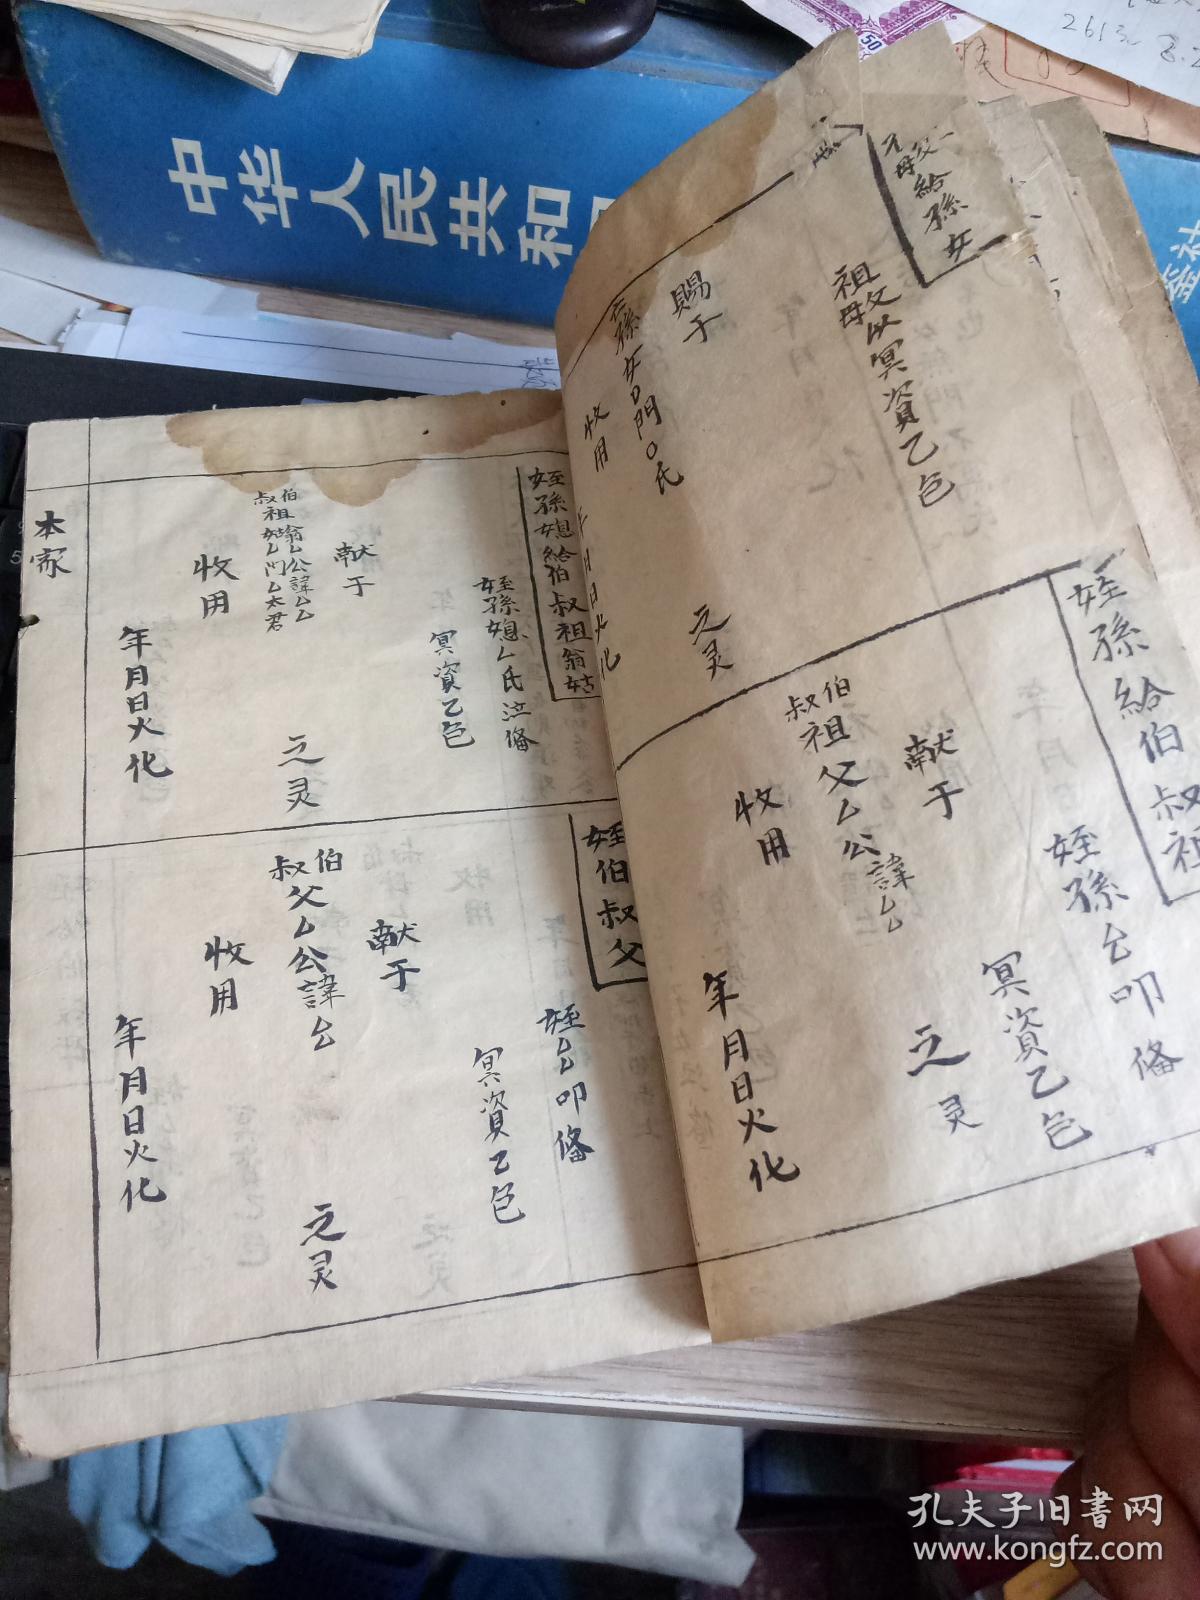 中华人民共和
50
給孫女
祖父母敬以冥資乙包
賜于
孫女〇門〇氏
之灵
收用
年月日火化
姪孫給伯叔祖
姪孫厶叩俻
冥資乙包
献于
伯叔祖父厶公諱厶厶
之灵
收用
年月日火化
姪孫媳給伯叔祖翁姑
姪孫媳厶氏泣俻
冥資乙包
献于
伯叔祖翁厶公諱厶厶
姑厶門厶太君
之灵
收用
年月日火化
姪伯叔父
姪厶厶叩俻
冥資乙包
献于
伯叔父厶公諱厶
之灵
收用
年月日火化
本家
孔夫子旧书网
www.kongfz.com